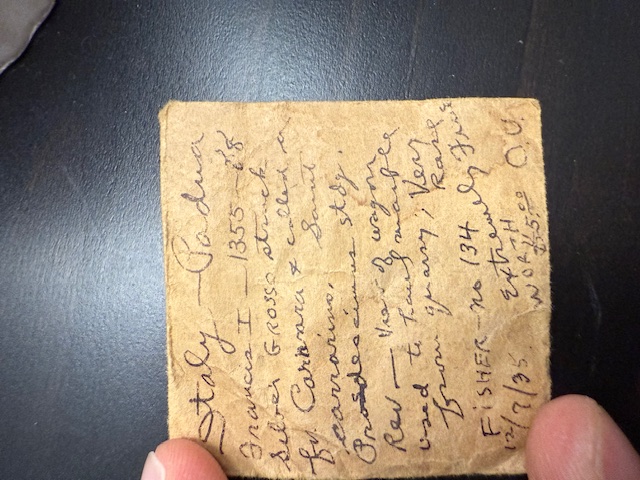 Italy — Padua
Francis I — 1355-88
Silver GROSSO struck
for Carrara & called a
carrarino. Saint
Prosdecimus stdg.
Rev — View of wagon
used to haul marble
from quarry; Very Rare
FISHER — no 134
Extremely Fine
12/7/35. WORTH 25.00 O.U.